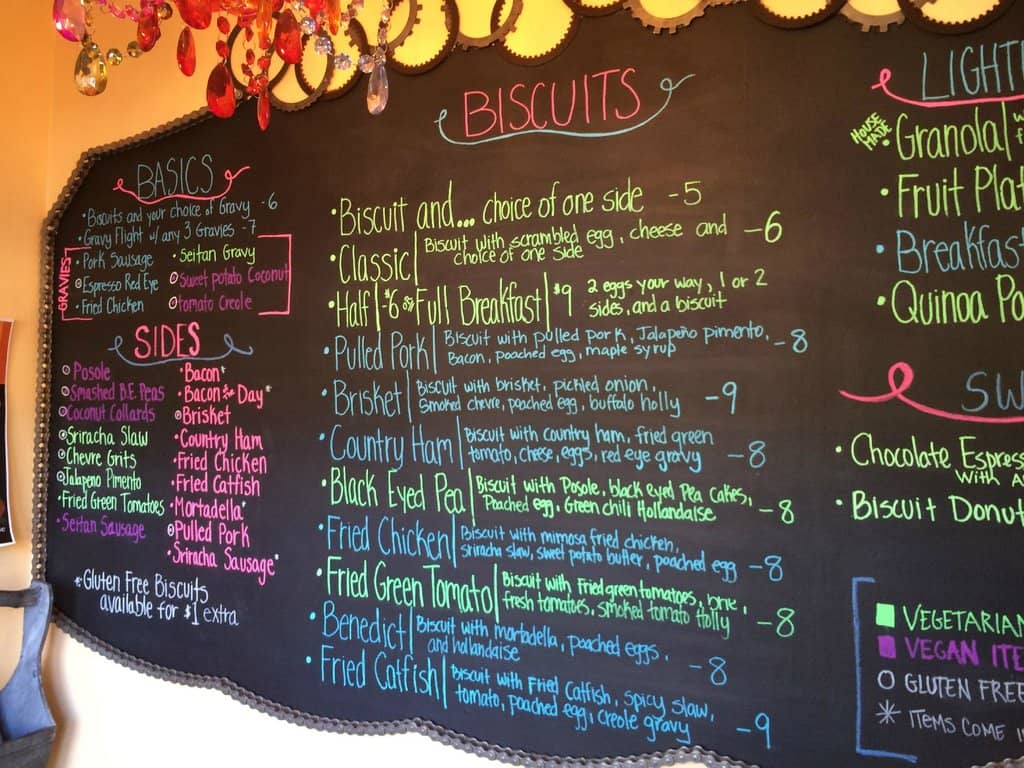 BASICS
• Biscuits and your choice of Gravy - 6
• Gravy Flight w/ any 3 Gravies - 7
GRAVIES
• Pork Sausage
• Espresso Red Eye
• Fried Chicken
• Seitan Gravy
Sweet potato Coconut
tomato Creole
SIDES
Posole
Smashed B.E. Peas
Coconut Collards
Sriracha Slaw
Chevre Grits
Jalapeno Pimento
• Fried Green Tomatoes
• Seitan Sausage
• Bacon*
• Bacon of the Day*
Brisket
• Country Ham
• Fried Chicken
• Fried Catfish
• Mortadella*
Pulled Pork
• Sriracha Sausage*
*Gluten Free Biscuits
available for $1 extra
BISCUITS
• Biscuit and... choice of one side - 5
• Classic | Biscuit with scrambled egg, cheese and
choice of one side - 6
• Half | $6 or Full Breakfast | $9 2 eggs your way, 1 or 2
sides, and a biscuit
• Pulled Pork | Biscuit with pulled pork, Jalapeño pimento,
Bacon, poached egg, maple syrup - 8
• Brisket | Biscuit with brisket, pickled onion,
smoked chevre, poached egg, buffalo holly - 9
• Country Ham | Biscuit with country ham, fried green
tomato, cheese, eggs, red eye gravy - 8
• Black Eyed Pea | Biscuit with Posole, black eyed Pea Cakes,
Poached egg, Green chili Hollandaise - 8
• Fried Chicken | Biscuit with mimosa fried chicken,
sriracha slaw, sweet potato butter, poached egg - 8
• Fried Green Tomato | Biscuit with Fried green tomatoes, brie,
fresh tomatoes, smoked tomato Holly - 8
• Benedict | Biscuit with mortadella, poached eggs,
and hollandaise - 8
• Fried Catfish | Biscuit with Fried Catfish, spicy slaw,
tomato, poached egg, creole gravy - 9
LIGHT
HOUSE MADE
• Granola |
• Fruit Plat
• Breakfas
• Quinoa Po
SW
• Chocolate Espres
WITH A
• Biscuit Donut
VEGETARIAN
VEGAN ITE
GLUTEN FREE
* ITEMS COME